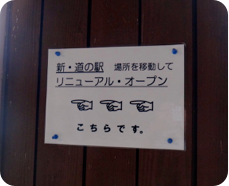 新・道の駅 場所を移動して
リニューアル・オープン
☜ ☜ ☜
こちらです。